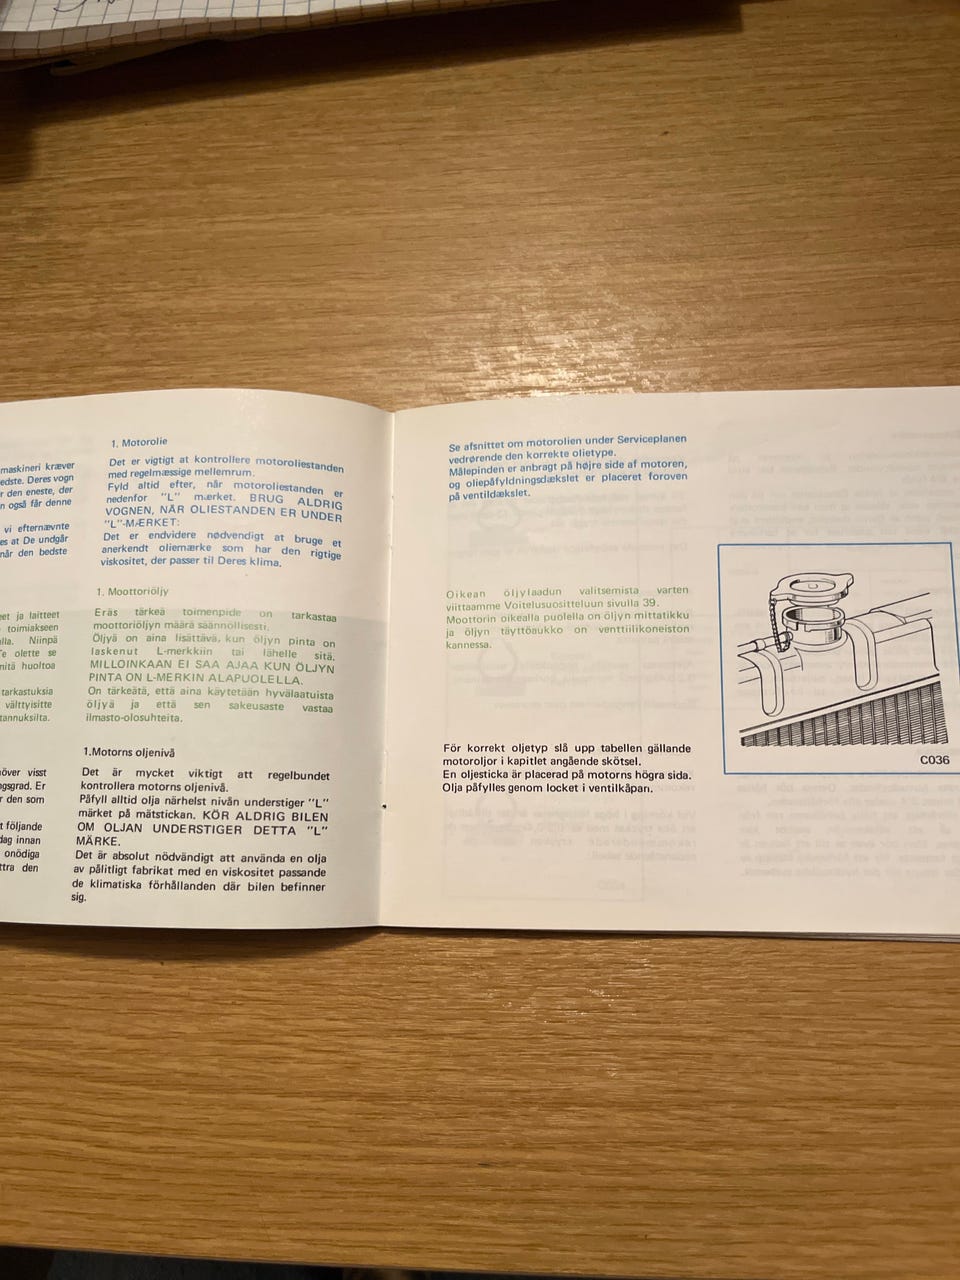 maskineri kræver
edste. Deres vogn
r den eneste, der
n også får denne
vi efternævnte
es at De undgår
når den bedste
eet ja laitteet
toimiakseen
lla. Niinpä
Te olette se
nitä huoltoa
tarkastuksia
välttyisitte
tannuksilta.
över visst
ngsgrad. Er
r den som
t följande
dag innan
onödiga
ttra den
1. Motorolie
Det er vigtigt at kontrollere motoroliestanden
med regelmæssige mellemrum.
Fyld altid efter, når motoroliestanden er
nedenfor "L" mærket. BRUG ALDRIG
VOGNEN, NÅR OLIESTANDEN ER UNDER
"L"-MÆRKET:
Det er endvidere nødvendigt at bruge et
anerkendt oliemærke som har den rigtige
viskositet, der passer til Deres klima.
1. Moottoriöljy
Eräs tärkeä toimenpide on tarkastaa
moottoriöljyn määrä säännöllisesti.
Öljyä on aina lisättävä, kun öljyn pinta on
laskenut L-merkkiin tai lähelle sitä.
MILLOINKAAN EI SAA AJAA KUN ÖLJYN
PINTA ON L-MERKIN ALAPUOLELLA.
On tärkeätä, että aina käytetään hyvälaatuista
öljyä ja että sen sakeusaste vastaa
ilmasto-olosuhteita.
1.Motorns oljenivå
Det är mycket viktigt att regelbundet
kontrollera motorns oljenivå.
Påfyll alltid olja närhelst nivån understiger "L"
märket på mätstickan. KÖR ALDRIG BILEN
OM OLJAN UNDERSTIGER DETTA "L"
MÄRKE.
Det är absolut nödvändigt att använda en olja
av pålitligt fabrikat med en viskositet passande
de klimatiska förhållanden där bilen befinner
sig.
Se afsnittet om motorolien under Serviceplanen
vedrørende den korrekte olietype.
Målepinden er anbragt på højre side af motoren,
og oliepåfyldningsdækslet er placeret foroven
på ventildækslet.
Oikean öljylaadun valitsemista varten
viittaamme Voitelusuositteluun sivulla 39.
Moottorin oikealla puolella on öljyn mittatikku
ja öljyn täyttöaukko on venttiilikoneiston
kannessa.
För korrekt oljetyp slå upp tabellen gällande
motoroljor i kapitlet angående skötsel.
En oljesticka är placerad på motorns högra sida.
Olja påfylles genom locket i ventilkåpan.
C036